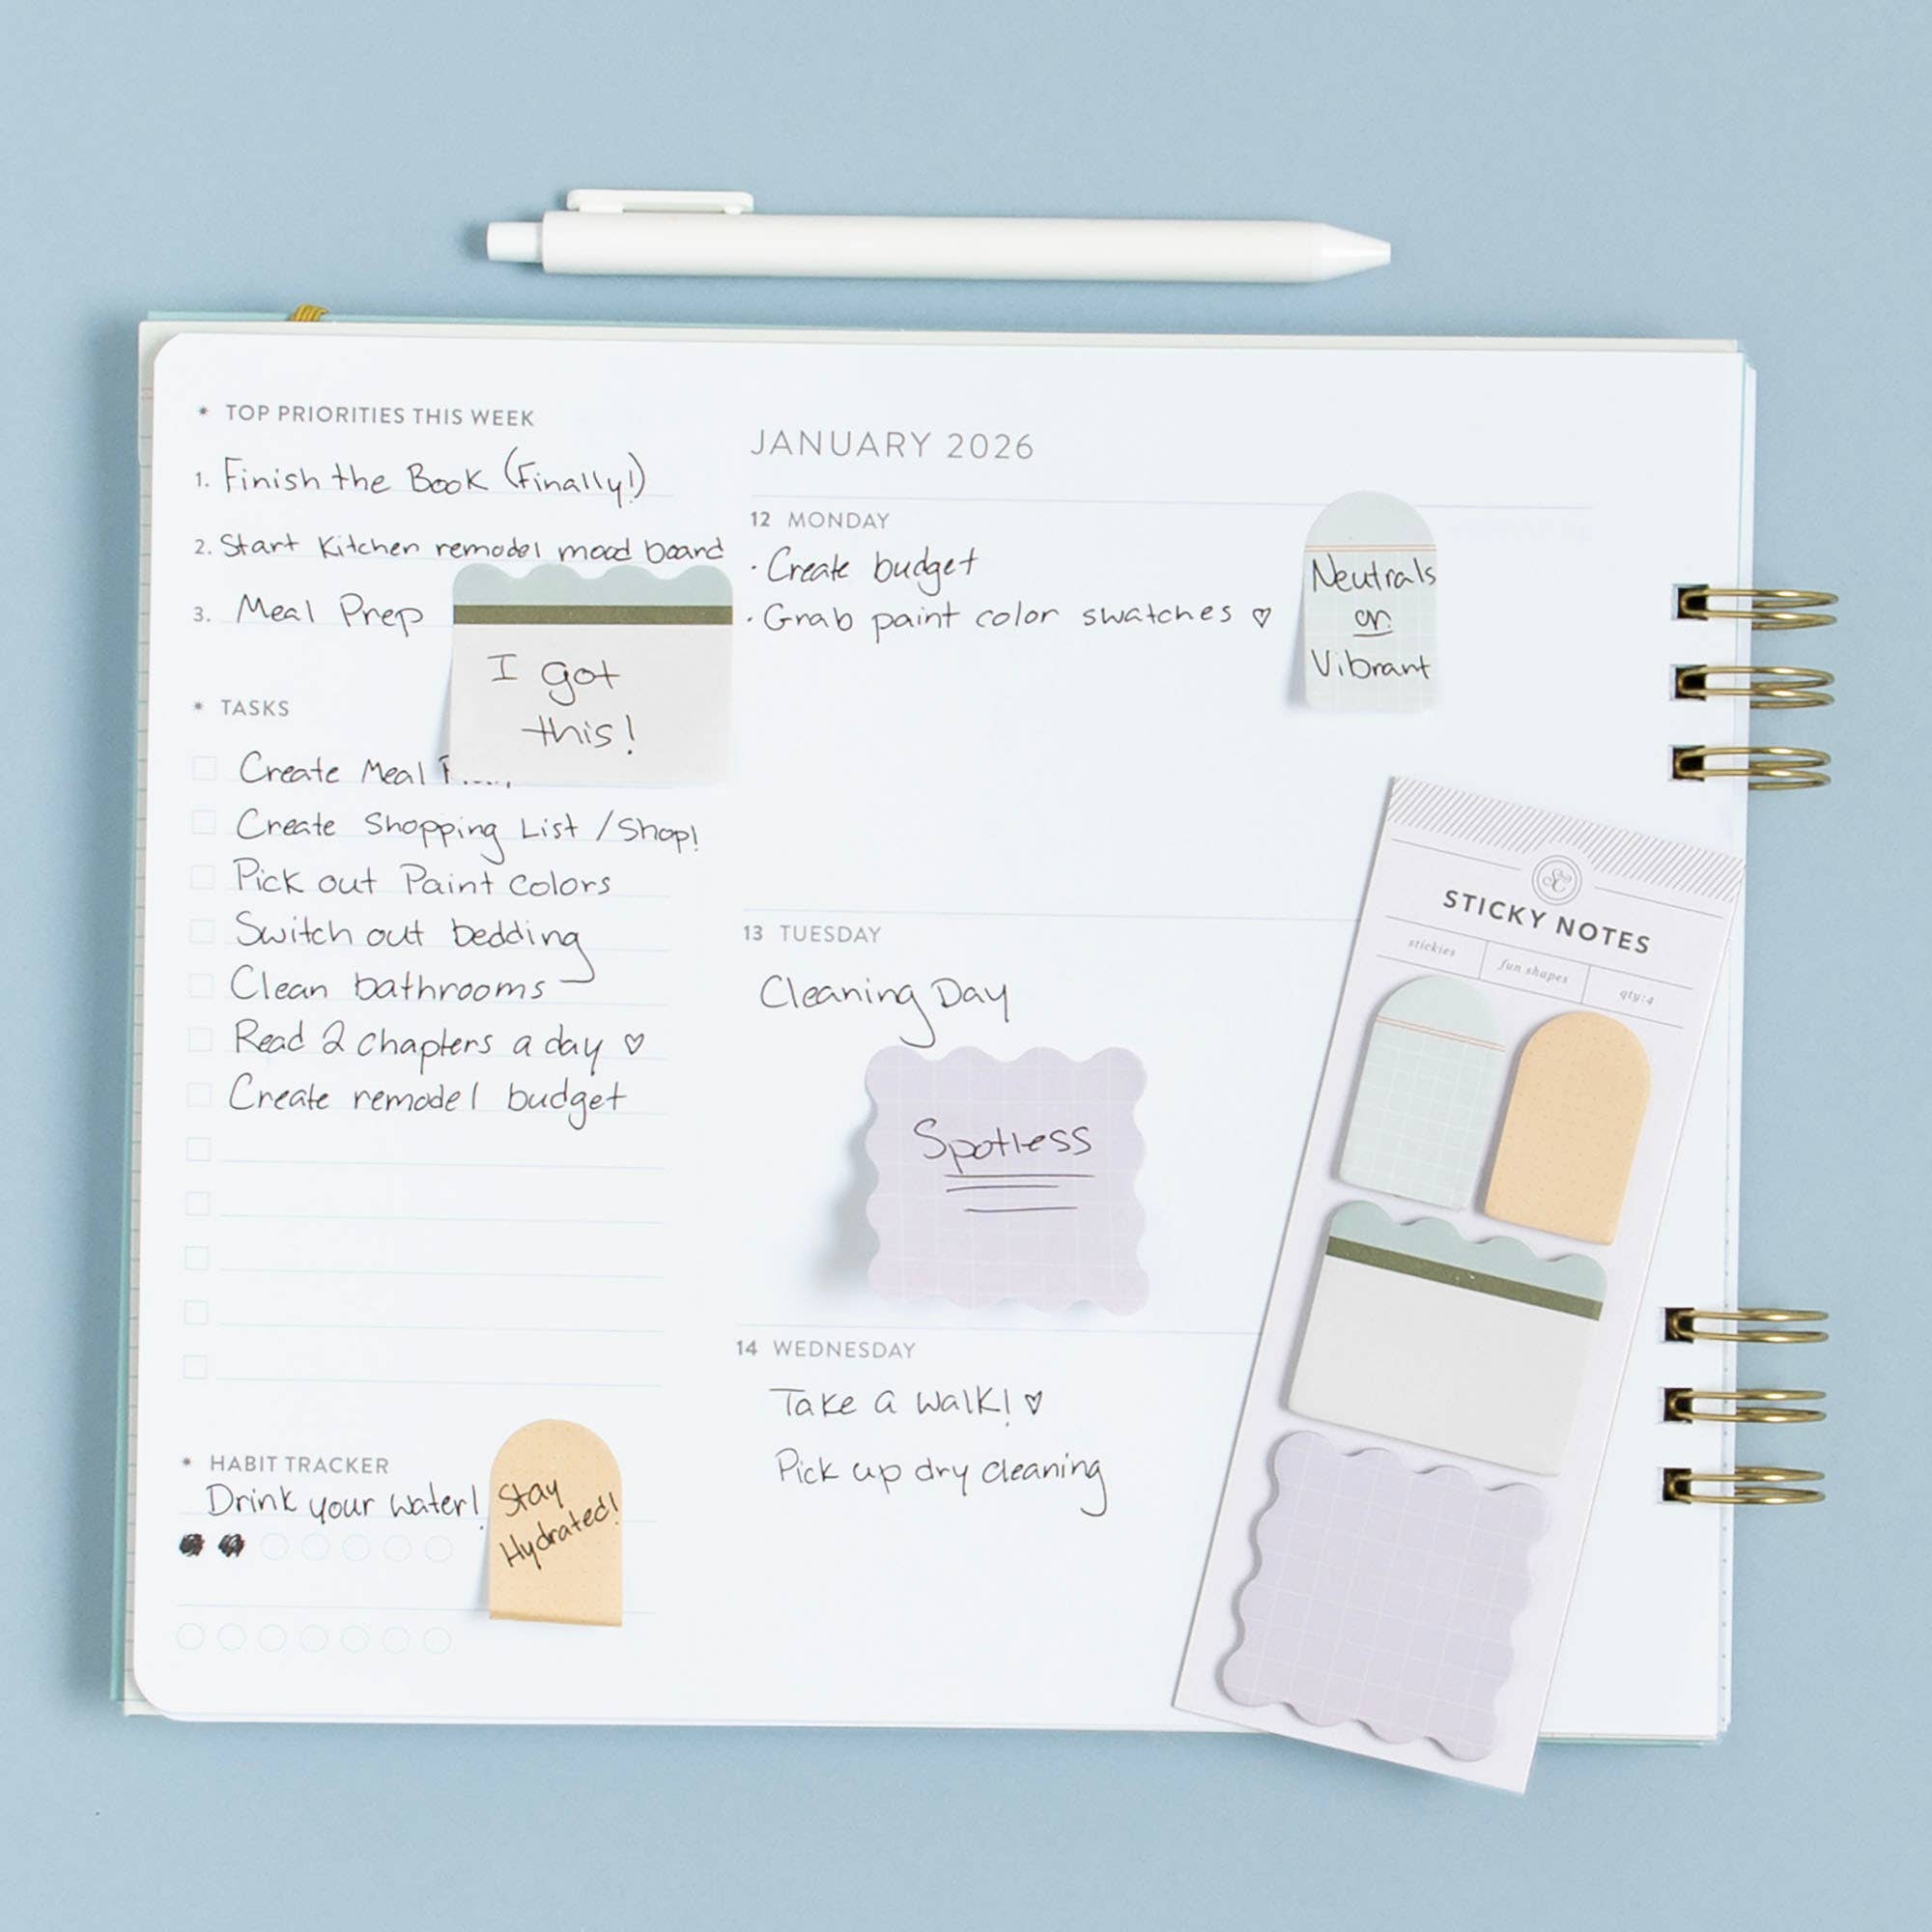 * TOP PRIORITIES THIS WEEK
1. Finish the Book (Finally!)
2. Start Kitchen remodel mood board
3. Meal Prep
I got
this!
* TASKS
Create Meal
Create Shopping List / Shop!
Pick out Paint Colors
Switch out bedding
Clean bathrooms
Read 2 chapters a day ♡
Create remodel budget
* HABIT TRACKER
Drink your water!
Stay
Hydrated!
JANUARY 2026
12 MONDAY
· Create budget
· Grab paint color swatches ♡
Neutrals
or
Vibrant
13 TUESDAY
Cleaning Day
Spotless
14 WEDNESDAY
Take a walk! ♡
Pick up dry cleaning
STICKY NOTES
stickies
fun shapes
qty:4